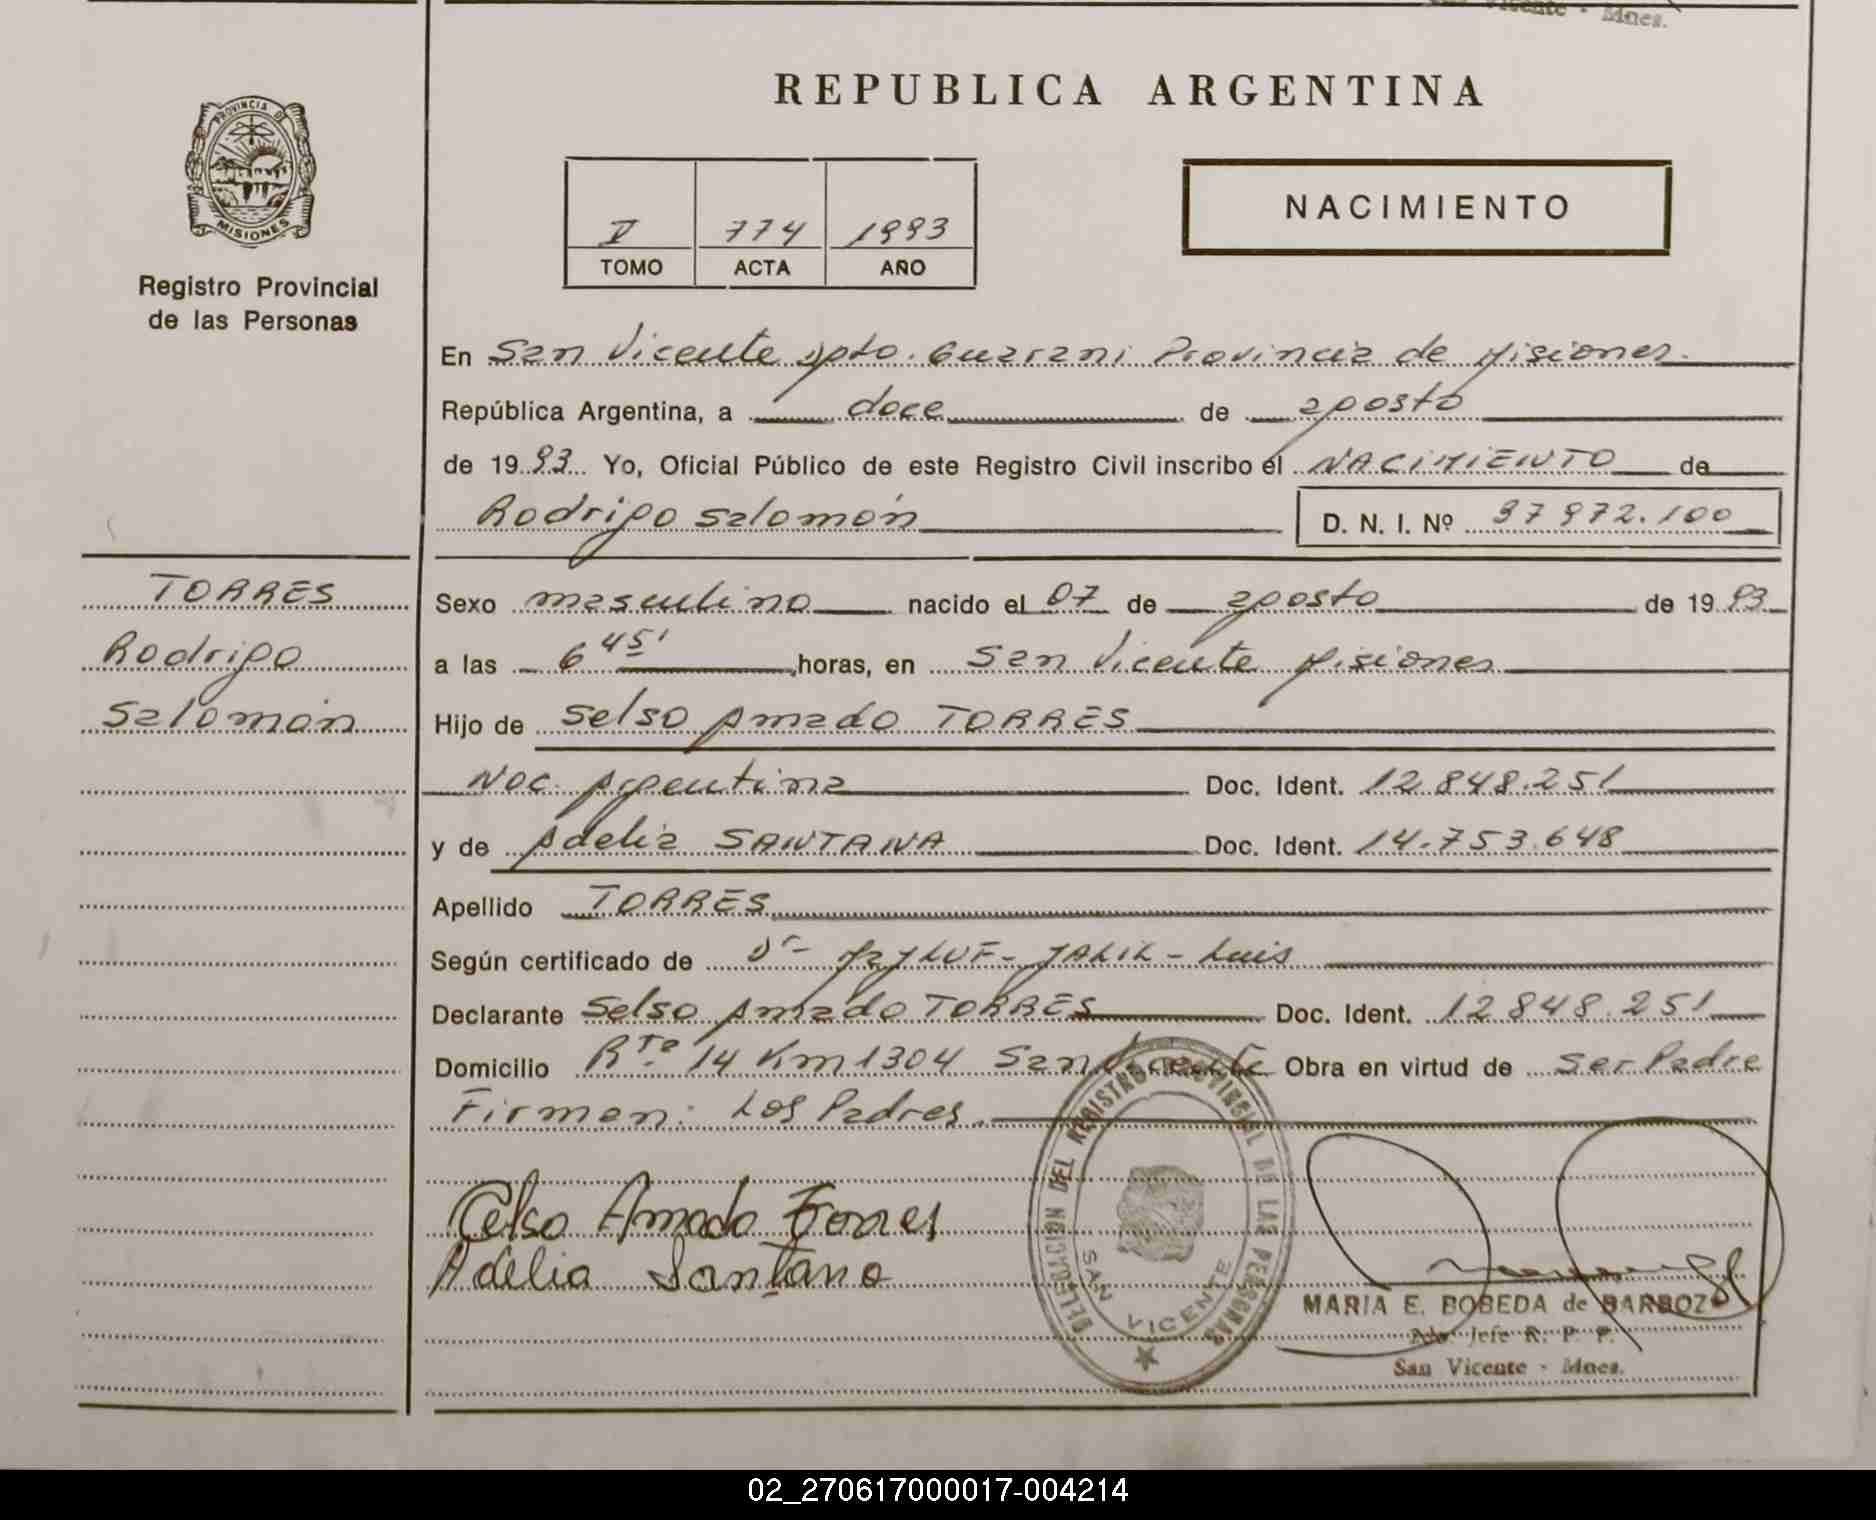 San Vicente - Mnes.
REPUBLICA ARGENTINA
PROVINCIA DE
MISIONES
Registro Provincial
de las Personas
V 774 1993
TOMO ACTA AÑO
NACIMIENTO
En San Vicente Dpto. Guarani Provincia de Misiones.
República Argentina, a doce de agosto
de 1993 Yo, Oficial Público de este Registro Civil inscribo el NACIMIENTO de
Rodrigo Salomón D. N. I. Nº 37972.100
TORRES
Rodrigo
Salomón
Sexo masculino nacido el 07 de agosto de 1993
a las 6 45' horas, en San Vicente Misiones
Hijo de Selso Amado TORRES
Nac. Argentina Doc. Ident. 12.848.251
y de Adelia SANTANA Doc. Ident. 14.753.648
Apellido TORRES
Según certificado de Dr- JALIL - Luis
Declarante Selso Amado TORRES Doc. Ident. 12.848.251
Domicilio Rta 14 Km 1304 San Vicente Obra en virtud de ser Padre
Firman: Los Padres.
Celso Amado Torres
Adelia Santana
DELEGACION DEL REGISTRO PROVINCIAL DE LAS PERSONAS
SAN VICENTE
MARIA E. BOBEDA de BARBOZA
Jefe R. P. P.
San Vicente - Mnes.
02_270617000017-004214